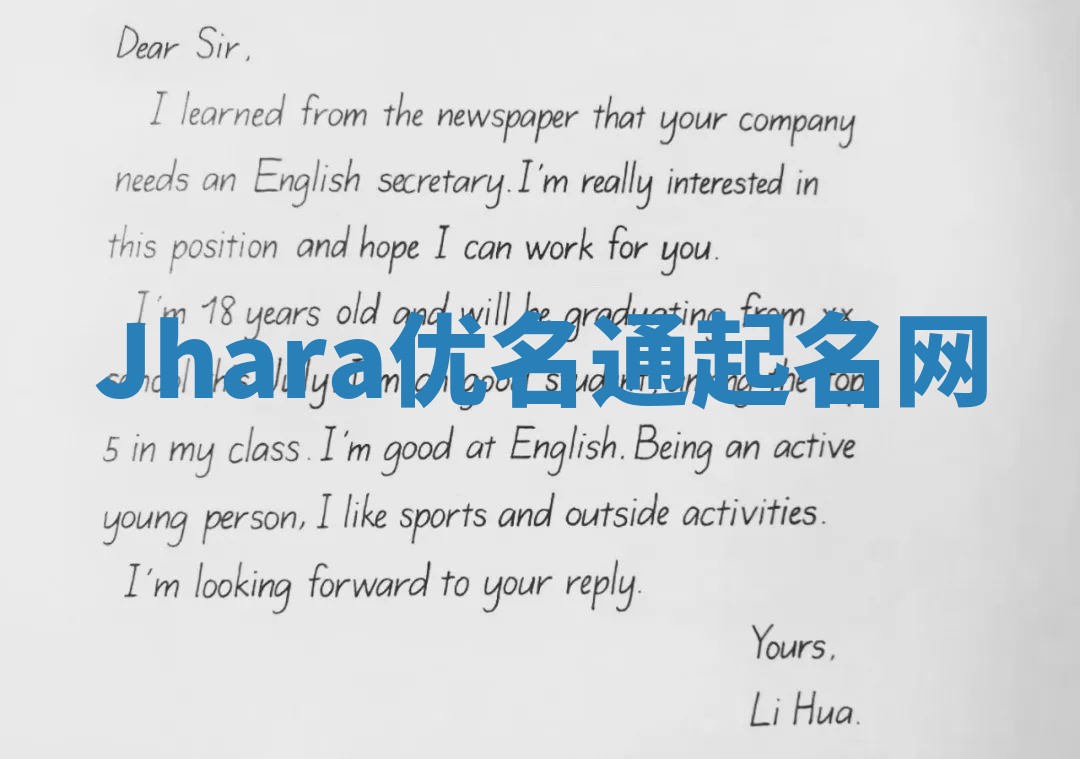 Dear Sir,
I learned from the newspaper that your company
needs an English secretary. I'm really interested in
this position and hope I can work for you.
I'm 18 years old and will be graduating from xx
Jhara优名通起名网
school this July. I'm a good student, among the top
5 in my class. I'm good at English. Being an active
young person, I like sports and outside activities.
I'm looking forward to your reply.
Yours,
Li Hua.